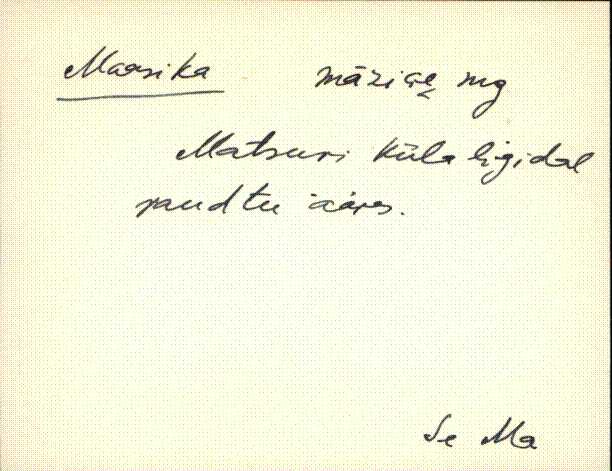 Maasika māziḱe̬ mg
Matsuri küla ligidal
raudtee ääres.
Se Ma